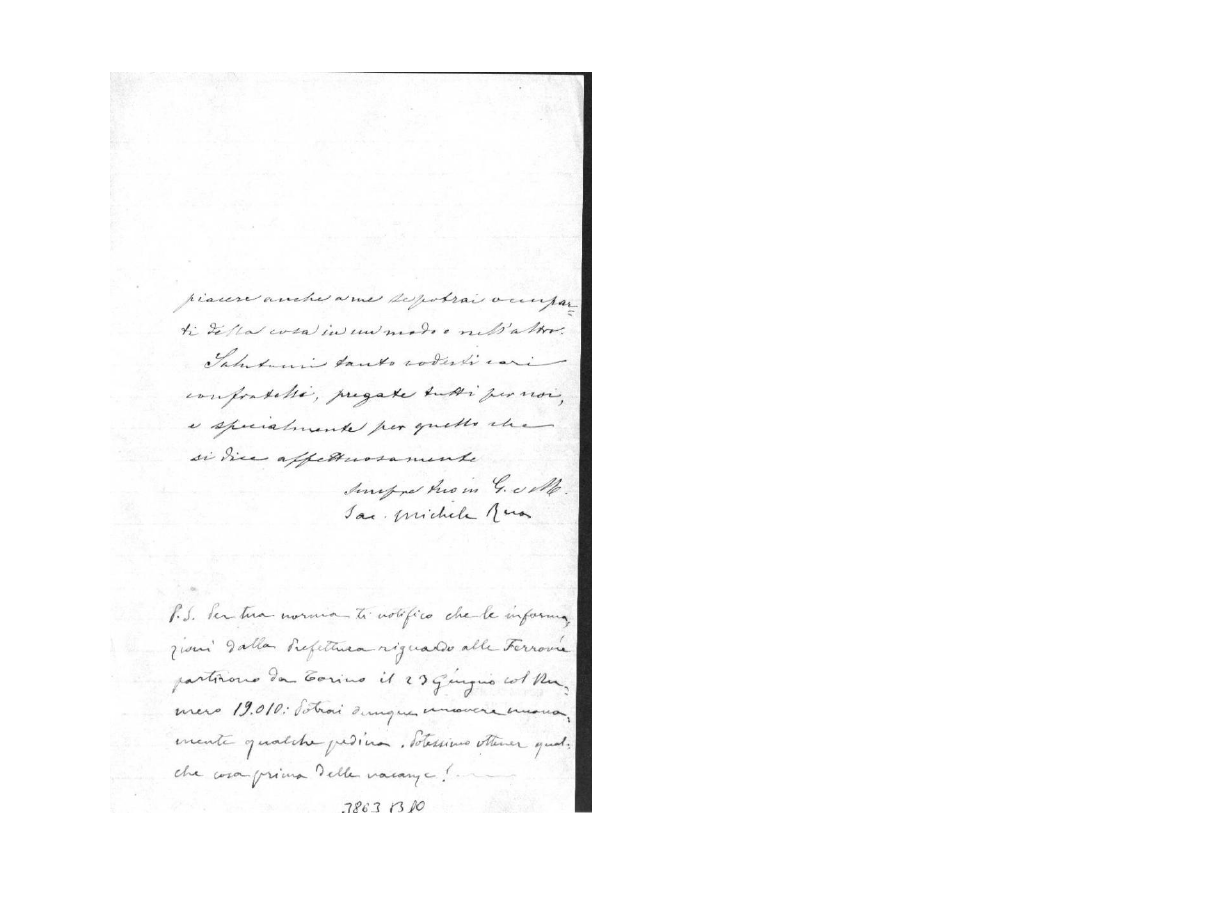 piacere anche a me se potrai occupar=
ti della cosa in un modo o nell'altro.
Salutami tanto codesti cari
confratelli, pregate tutti per noi,
e specialmente per quello che
si dice affettuosamente
sempre tuo in G. e M.
Sac. Michele Rua
P.S. Per tua norma ti notifico che le informa=
zioni dalla Prefettura riguardo alle Ferrovie
partirono da Torino il 23 Giugno col Nu=
mero 19.010: Potrai dunque muovere nuova=
mente qualche pedina. Potessimo ottener qual=
che cosa prima delle vacanze!
3863 B10